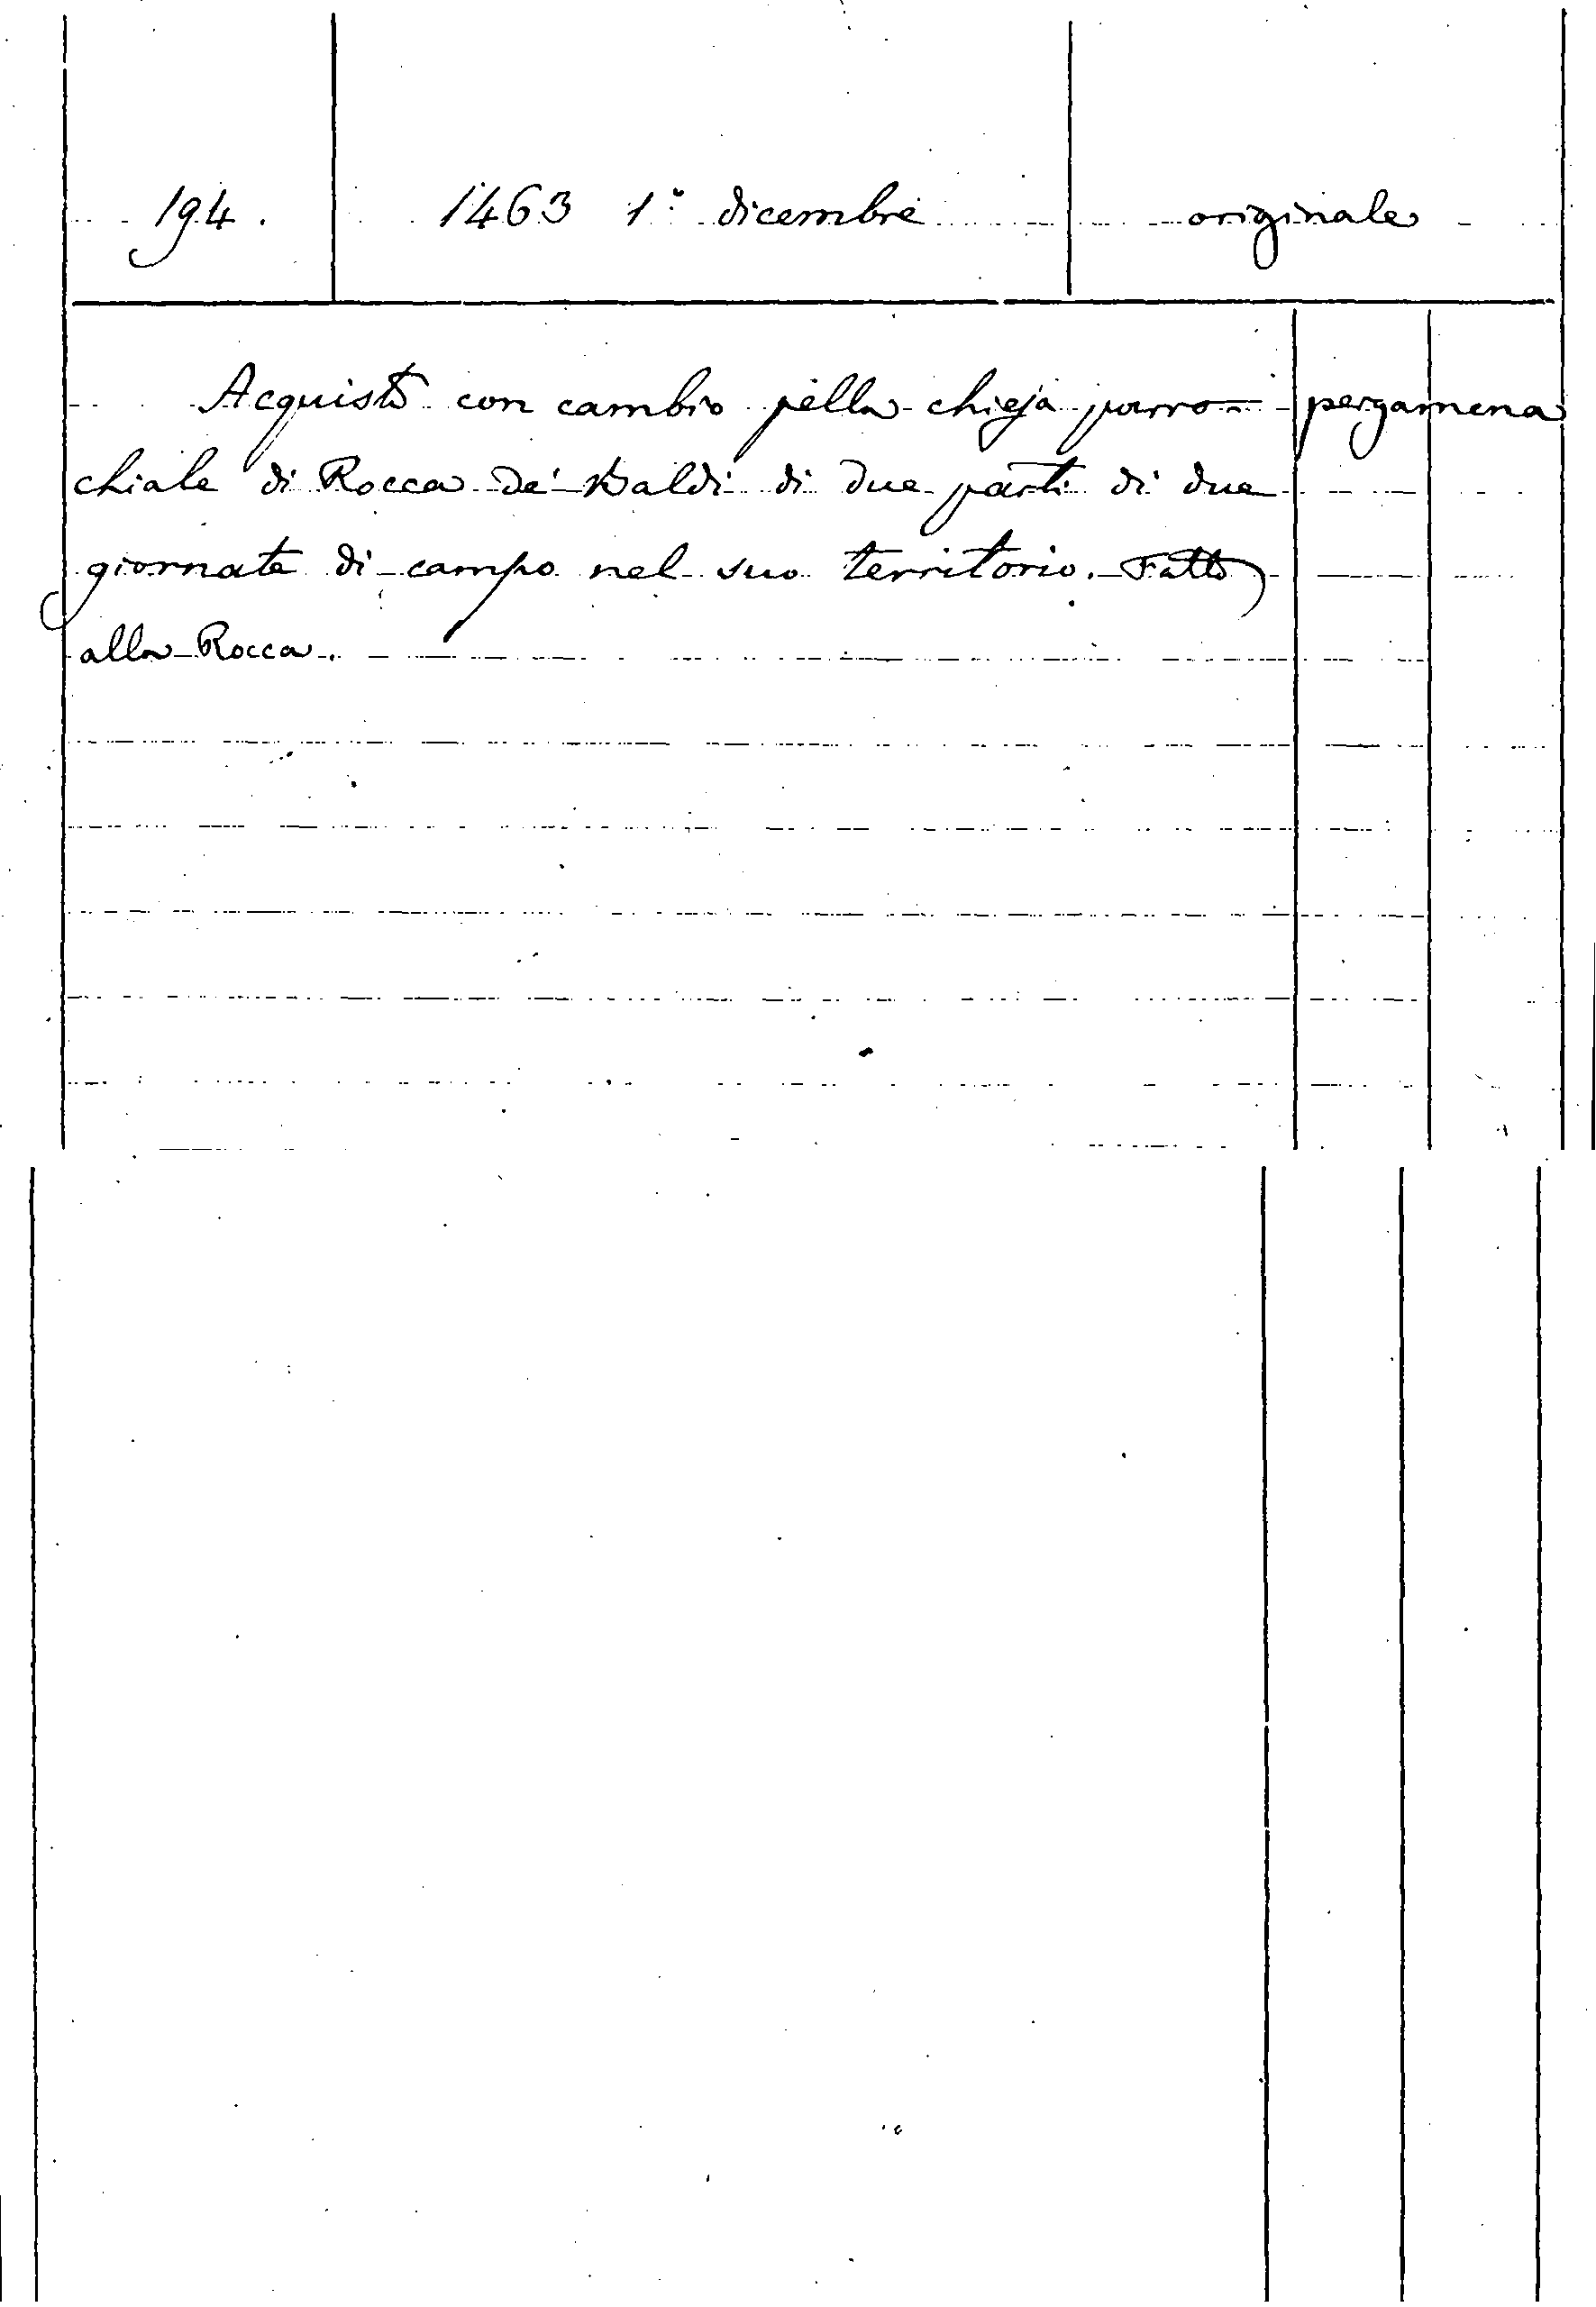 194. 1463 1° dicembre originale
Acquisto con cambio pella chiesa parro- pergamena
chiale di Rocca de' Baldi di due parti di due
giornate di campo nel suo territorio. Fatto
alla Rocca.